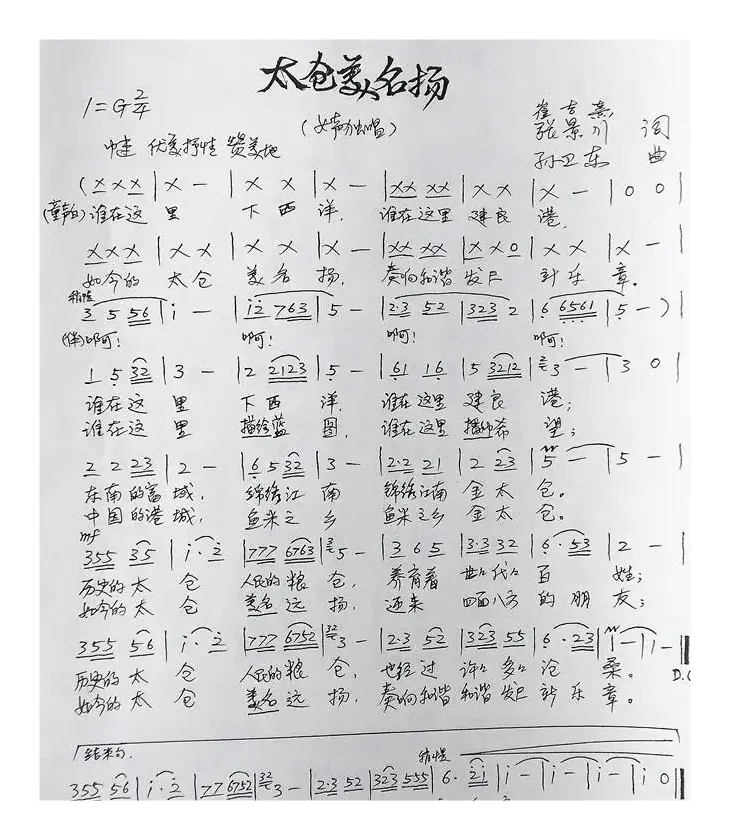 太仓美名扬
1=G 2/4
(女声独唱)
中速 优美抒情 赞美地
张景川 词
孙卫东 曲
(X X X | X — | X X X | X — | XX XX | X X | X — | 0 0 |
(童声白) 谁在这里 下西洋, 谁在这里建良港,
X X X | X X | X X X | X — | XX XX | X X 0 | X X | X — |
如今的太仓 美名扬, 奏响和谐发展新乐章。
稍慢
3 5 56 | i — | i2 763 | 5 — | 2·3 52 | 323 2 | 6 6561 | 5 — ) |
(伴)啊! 啊! 啊! 啊!
1 5 32 | 3 — | 2 2123 | 5 — | 61 16 | 5 3212 | 3 — | 3 0 |
谁在这里 下西洋, 谁在这里建良港;
谁在这里 描绘蓝图, 谁在这里播种希望;
2 2 23 | 2 — | 6 5 32 | 3 — | 2·2 21 | 2 23 | 5 — | 5 — |
东南的富城, 锦绣江南 锦绣江南金太仓。
中国的港城, 鱼米之乡 鱼米之乡金太仓。
mf
355 35 | i·2 | 777 6763 | 5 — | 3 6 5 | 3·3 32 | 6·53 | 2 — |
历史的太仓 人民的粮仓, 养育着世世代代百姓;
如今的太仓 美名远扬, 迎来四面八方的朋友;
355 56 | i·2 | 777 6752 | 3 — | 2·3 52 | 323 55 | 6·23 | 1 — | 1 — ‖
历史的太仓 人民的粮仓, 也经过许许多多沧桑。
D.C
如今的太仓 美名远扬, 奏响和谐和谐发展新乐章。
结束句.
稍慢
355 56 | i·2 | 77 6752 | 3 — | 2·3 52 | 323 555 | 6·2i | i — | i — | i — | i 0 ‖